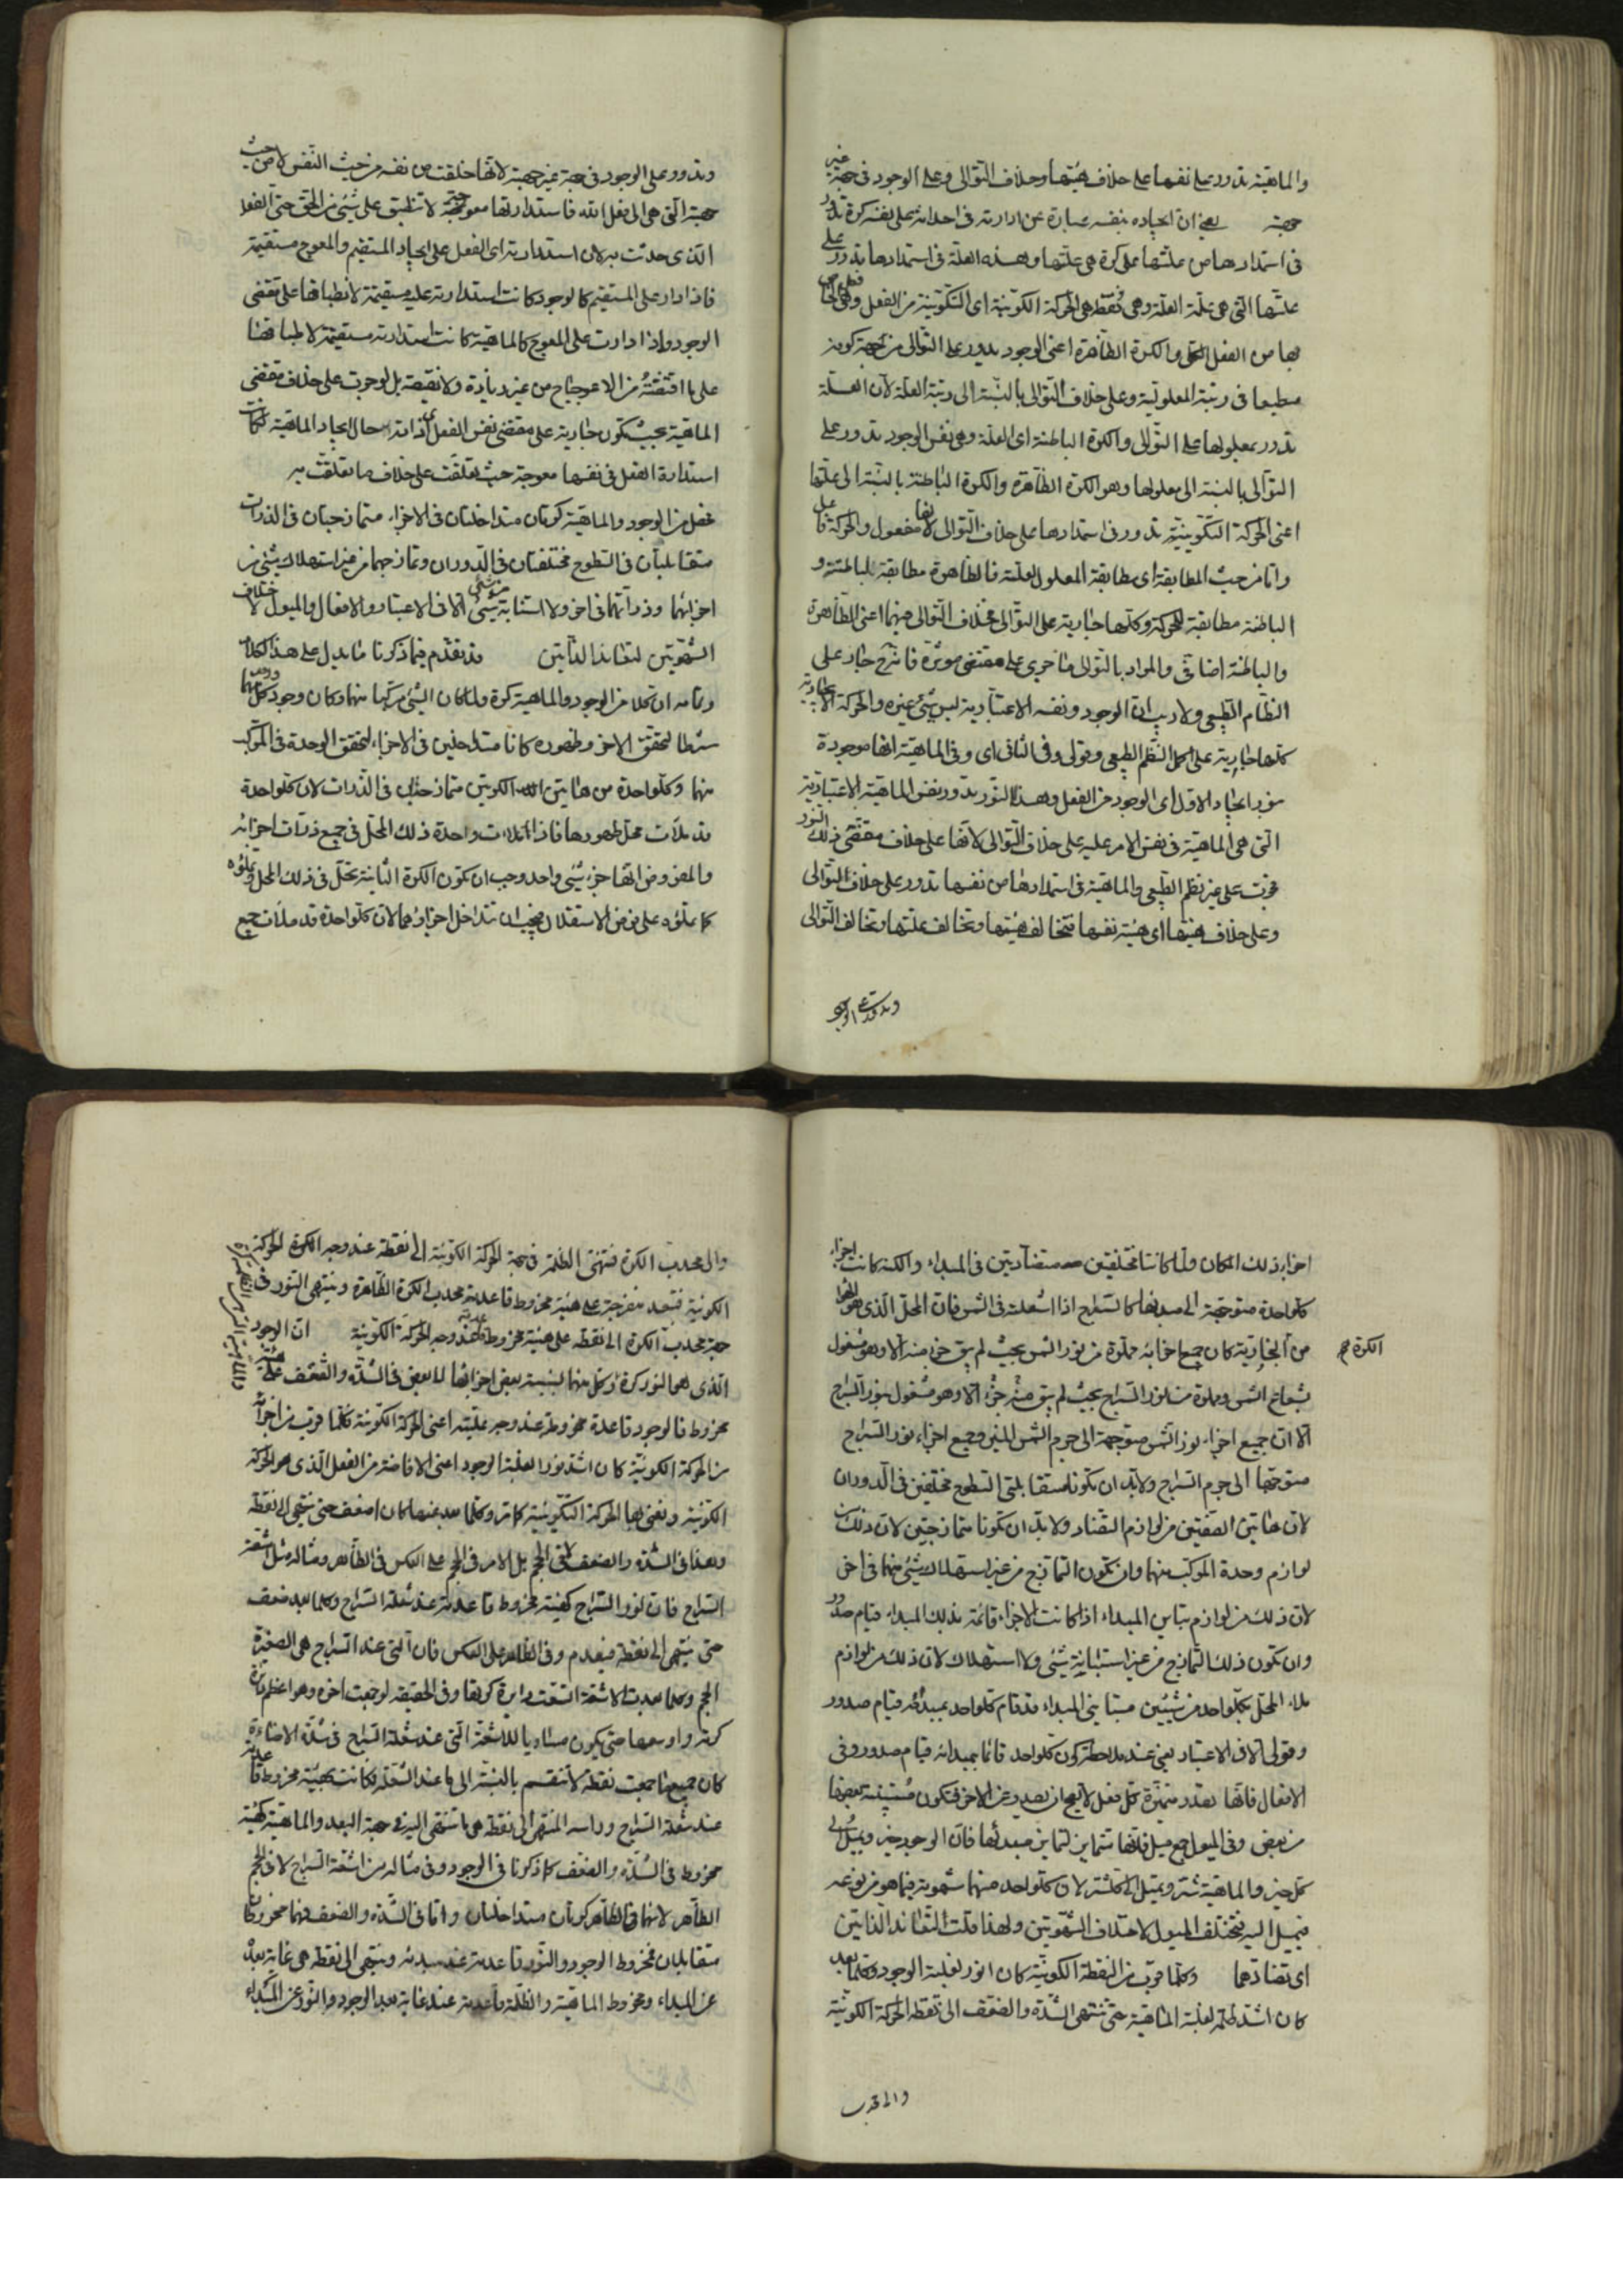 والماهية تدور على نفسها على خلاف هيئتها وخلاف التوالى وعلى الوجود فى جهة غير
جهته يعنى ان ايجاده بنفسه عبارة عن ادارته فى احداثه على نفسه كرة تدور
فى استمدادها من علتها على كرة هى علتها وهذه العلة فى استمدادها تدور على
علتها التى هى علة العلة وهى نقطة هى الحركة الكونية اى التكوينية من الفعل
بها من الفعل والكرة الظاهرة اعنى الوجود يدور على التوالى من جهة كونه
منطبعا فى رتبة المعلولية وعلى خلاف التوالى بالنسبة الى رتبة العلة لان العلة
تدور بمعلولها على التوالى والكرة الباطنة اى العلة وهى نفس الوجود تدور على
التوالى بالنسبة الى معلولها وهو الكرة الظاهرة والكرة الباطنة بالنسبة الى علتها
اعنى الحركة التكوينية تدور فى استمدادها على خلاف التوالى لانها مفعول والحركة فاعل
واما من حيث المطابقة اى مطابقة المعلول لعلته فالظاهرة مطابقة للباطنة و
الباطنة مطابقة للحركة وكلها جارية على التوالى فخلاف التوالى فيهما اعنى الظاهرة
والباطنة اضافى والمراد بالتوالى ما جرى على مقتضى موثره فانه ح جار على
النظام الطبيعى ولا ريب ان الوجود ونفسه الاعتبارية ليس شئ غيره والحركة الايجادية
كلها جارية على اكمل النظم الطبيعى وقولى وفى الثانى اى وفى الماهية انها موجودة
بنور ايجاد الاول اى الوجود من الفعل وهذا النور تدور نفس الماهية الاعتبارية
التى هى الماهية فى نفس الامر عليه على خلاف التوالى لانها على خلاف مقتضى ذلك النور
فجرت على غير نظم الطبيعى والماهية فى استمدادها من نفسها تدور على خلاف التوالى
وعلى خلاف هيئتها اى هيئة نفسها فتخالف هيئتها وتخالف علتها وتخالف التوالى
وتدور على الوجود
وتدور على الوجود فى جهة غير جهته لانها خلقت من نفسه من حيث النفس لا من حيث
جهته التى هى الى فعل الله فاستدارتها معوجة لا تنطبق على شئ من الحق حتى الفعل
الذى حدثت به لان استدارته اى الفعل على ايجاد المستقيم والمعوج مستقيمة
فاذا دار على المستقيم كالوجود كانت استدارته عليه مستقيمة لانطباقها على مقتضى
الوجود واذا دارت على المعوج كالماهية كانت استدارته مستقيمة لانطباقها
على ما اقتضته من الاعوجاج من غير زيادة ولا نقيصة بل لو جرت على خلاف مقتضى
الماهية بحيث تكون جارية على مقتضى نفس الفعل اى ذاته حال ايجاد الماهية لكانت
استدارة الفعل فى نفسها معوجة حيث تعلقت على خلاف ما تعلقت به
فصل من الوجود والماهية كرتان متداخلتان فى الاجزاء متمازجتان فى الذرات
متقابلتان فى السطوح مختلفتان فى الدوران وتمازجهما من غير استهلاك شئ من
اجزائهما وذراتهما فى اخر ولا استبانة شئ من شئ الا فى الاعتبار والافعال والميول لاختلاف
الشهوتين لتعاند الذاتين قد تقدم فيما ذكرنا ما يدل على هذا الكلام
وتمامه ان كلا من الوجود والماهية كرة ولما كان الشئ مركبا منهما وكان وجود كل منهما
شرطا لتحقق الاخر وظهوره كانا متداخلين فى الاجزاء لتحقق الوحدة فى المركب
منهما وكلواحدة من هاتين الكرتين متمازجتان فى الذرات لان كلواحدة
قد ملأت محل ظهورها فاذا ملات واحدة ذلك المحل فى جميع ذرات اجزائه
والمفروض انها جزء شئ واحد وجب ان تكون الكرة الثانية تحل فى ذلك المحل وتملؤه
كما تملؤه على فرض الاستقلال فيجب ان تتداخل اجزاؤهما لان كلواحدة قد ملأت جميع
اجزاء ذلك المكان ولما كانتا مختلفتين متضادتين فى المبداء والكنه كانت اجزاء
كلواحدة متوجهة الى مبدئها كالسراج اذا اشعلته فى الشمس فان المحل الذى هو الهواء
من البخارية كان جميع اجزائه مملوة من نور الشمس بحيث لم يبق جزء منه الا وهو مشغول
الكرة
بشعاع الشمس ومملوة من نور السراج بحيث لم يبق منه جزء الا وهو مشغول بنور السراج
الا ان جميع اجزاء نور الشمس متوجهة الى جرم الشمس المنير وجميع اجزاء نور السراج
متوجها الى جرم السراج ولا بد ان تكونا متقابلتى السطوح مختلفتين فى الدوران
لان هاتين الصفتين من لوازم التضاد ولا بد ان تكونا متمازجتين لان ذلك من
لوازم وحدة المركب منهما وان تكون التمازج من غير استهلاك شئ منهما فى اخر
لان ذلك من لوازم تباين المبداء اذا كانت الاجزاء قائمة بذلك المبداء قيام صدور
وان تكون ذلك التمازج من غير استبانة شئ ولا استهلاك لان ذلك من لوازم
ملاء المحل بكلواحد من شيئين متباينى المبداء قد قام كلواحد بمبدئه قيام صدور
وقولى الا فى الاعتبار يعنى عند ملاحظة كون كلواحد قائما بمبدائه قيام صدور وفى
الافعال فانها تصدر متميزة كل فعل لا يصح ان يصدر عن الاخر فتكون مستبينة بعضها
من بعض وفى الميول جمع ميل فانها تتمايز لتمايز مبدئها فان الوجود خير ويميل الى
كل خير والماهية شر وتميل الى كل شر لان كلواحد منهما شهوته فيما هو من نوعه
فيميل اليه فتختلف الميول لاختلاف الشهوتين ولهذا قلت لتعاند الذاتين
اى تضادهما وكلما قرب من النقطة الكونية كان انور لغلبة الوجود وكلما بعد
كان اشد ظلمة لغلبة الماهية حتى تنتهى الشدة والضعف الى نقطة الحركة الكونية
والى محدب
والى محدب الكرة فتنتهى الظلمة فى جهة الحركة الكونية الى نقطة عند وجه الكرة الحركة
الكونية فتبعد منفرجة على هيئة مخروط قاعدته محدب الكرة الظاهرة وينتهى النور فى
جهة محدب الكرة الى نقطة على هيئة مخروط قاعدته عند وجه الحركة الكونية ان الوجود
الذى هو النور كرة وكل منهما بنسبة بعض اجزائها الى بعض فى الشدة والضعف على هيئة
مخروط فالوجود قاعدة مخروطه عند وجه علته اعنى الحركة الكونية فكلما قرب من اجزائه
من الحركة الكونية كان اشد نورا لغلبة الوجود اعنى الافاضة من الفعل الذى هو الحركة
الكونية ونعنى بها الحركة التكوينية كما مر وكلما بعد عنها كان اضعف حتى ينتهى الى نقطة
وهذا فى الشدة والضعف لا فى الحجم بل الامر فى الحجم على العكس فى الظاهر ومثاله مثل اشعة
السراج فان نور السراج كهيئة مخروط قاعدته عند شعلة السراج وكلما بعد ضعف
حتى ينتهى الى نقطة فينعدم وفى الظاهر على العكس فان التى عند السراج هى الصغيرة
الحجم وكلما بعدت الاشعة اتسعت دائرة كرتها وفى الحقيقة لو جمعت اخره وهو اعظم دائرة
كرته واوسعها حتى يكون مساويا للاشعة التى عند شعلة السراج فى شدة الاضاءة
كان جميع ما جمعت نقطة لا تنقسم بالنسبة الى ما عند الشعلة فكانت كهيئة مخروط قاعدته
عند شعلة السراج وراسه المنتهى الى نقطة هى ما تنتهى اليه فى جهة البعد والماهية كهيئة
مخروط فى الشدة والضعف كما ذكرنا فى الوجود وفى مثاله من اشعة السراج لا فى الحجم
الظاهر لانهما فى الظاهر كرتان متداخلتان واما فى الشدة والضعف فهما مخروطان
متقابلان فمخروط الوجود والنور قاعدته عند مبدئه وينتهى الى نقطة هى غاية بعده
عن المبداء ومخروط الماهية والظلمة قاعدته عند غاية بعد الوجود والنور عن المبداء